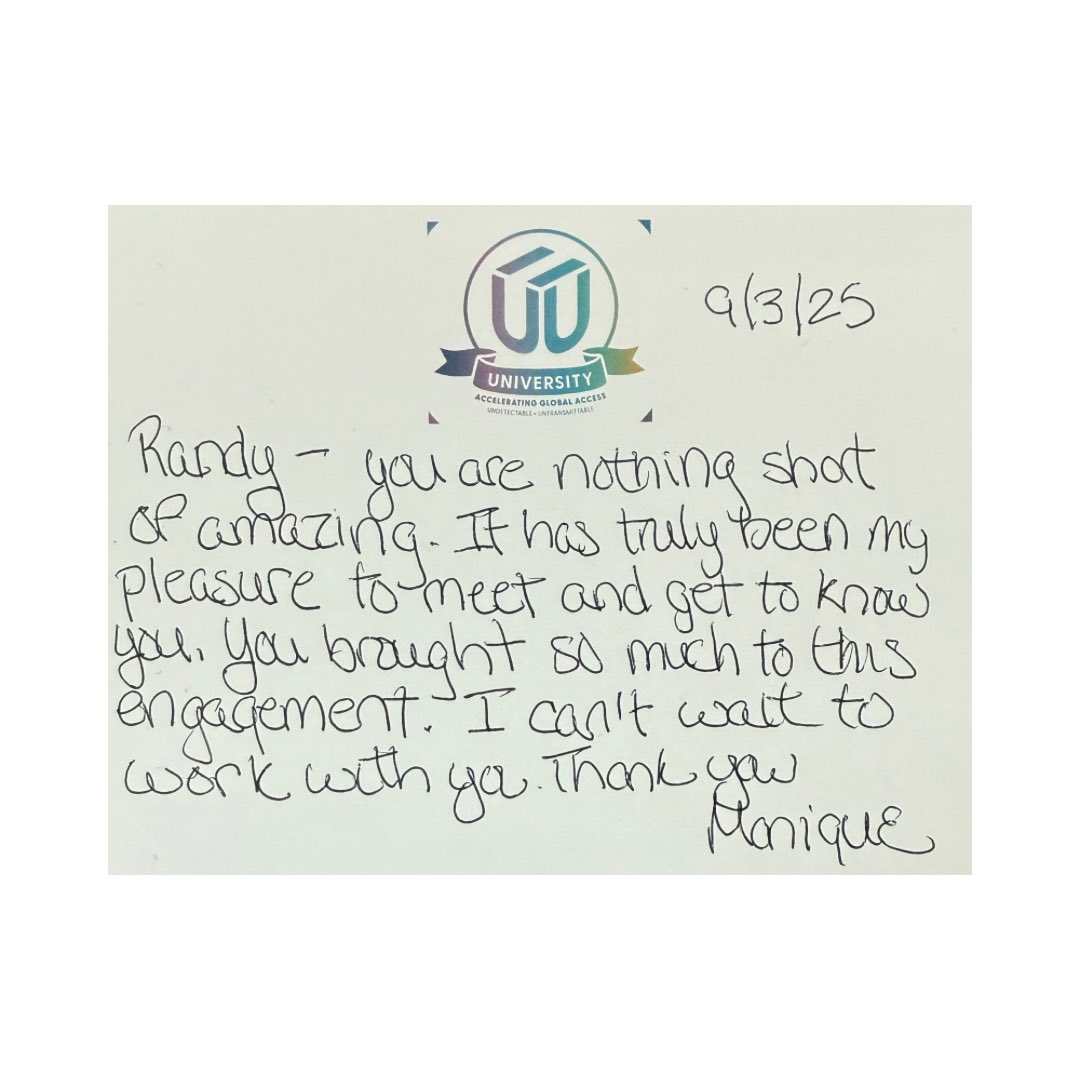 UU
UNIVERSITY
ACCELERATING GLOBAL ACCESS
UNDETECTABLE = UNTRANSMITTABLE
9/3/25
Randy - you are nothing short
of amazing. It has truly been my
pleasure to meet and get to know
you. You brought so much to this
engagement. I can't wait to
work with you. Thank you
Monique